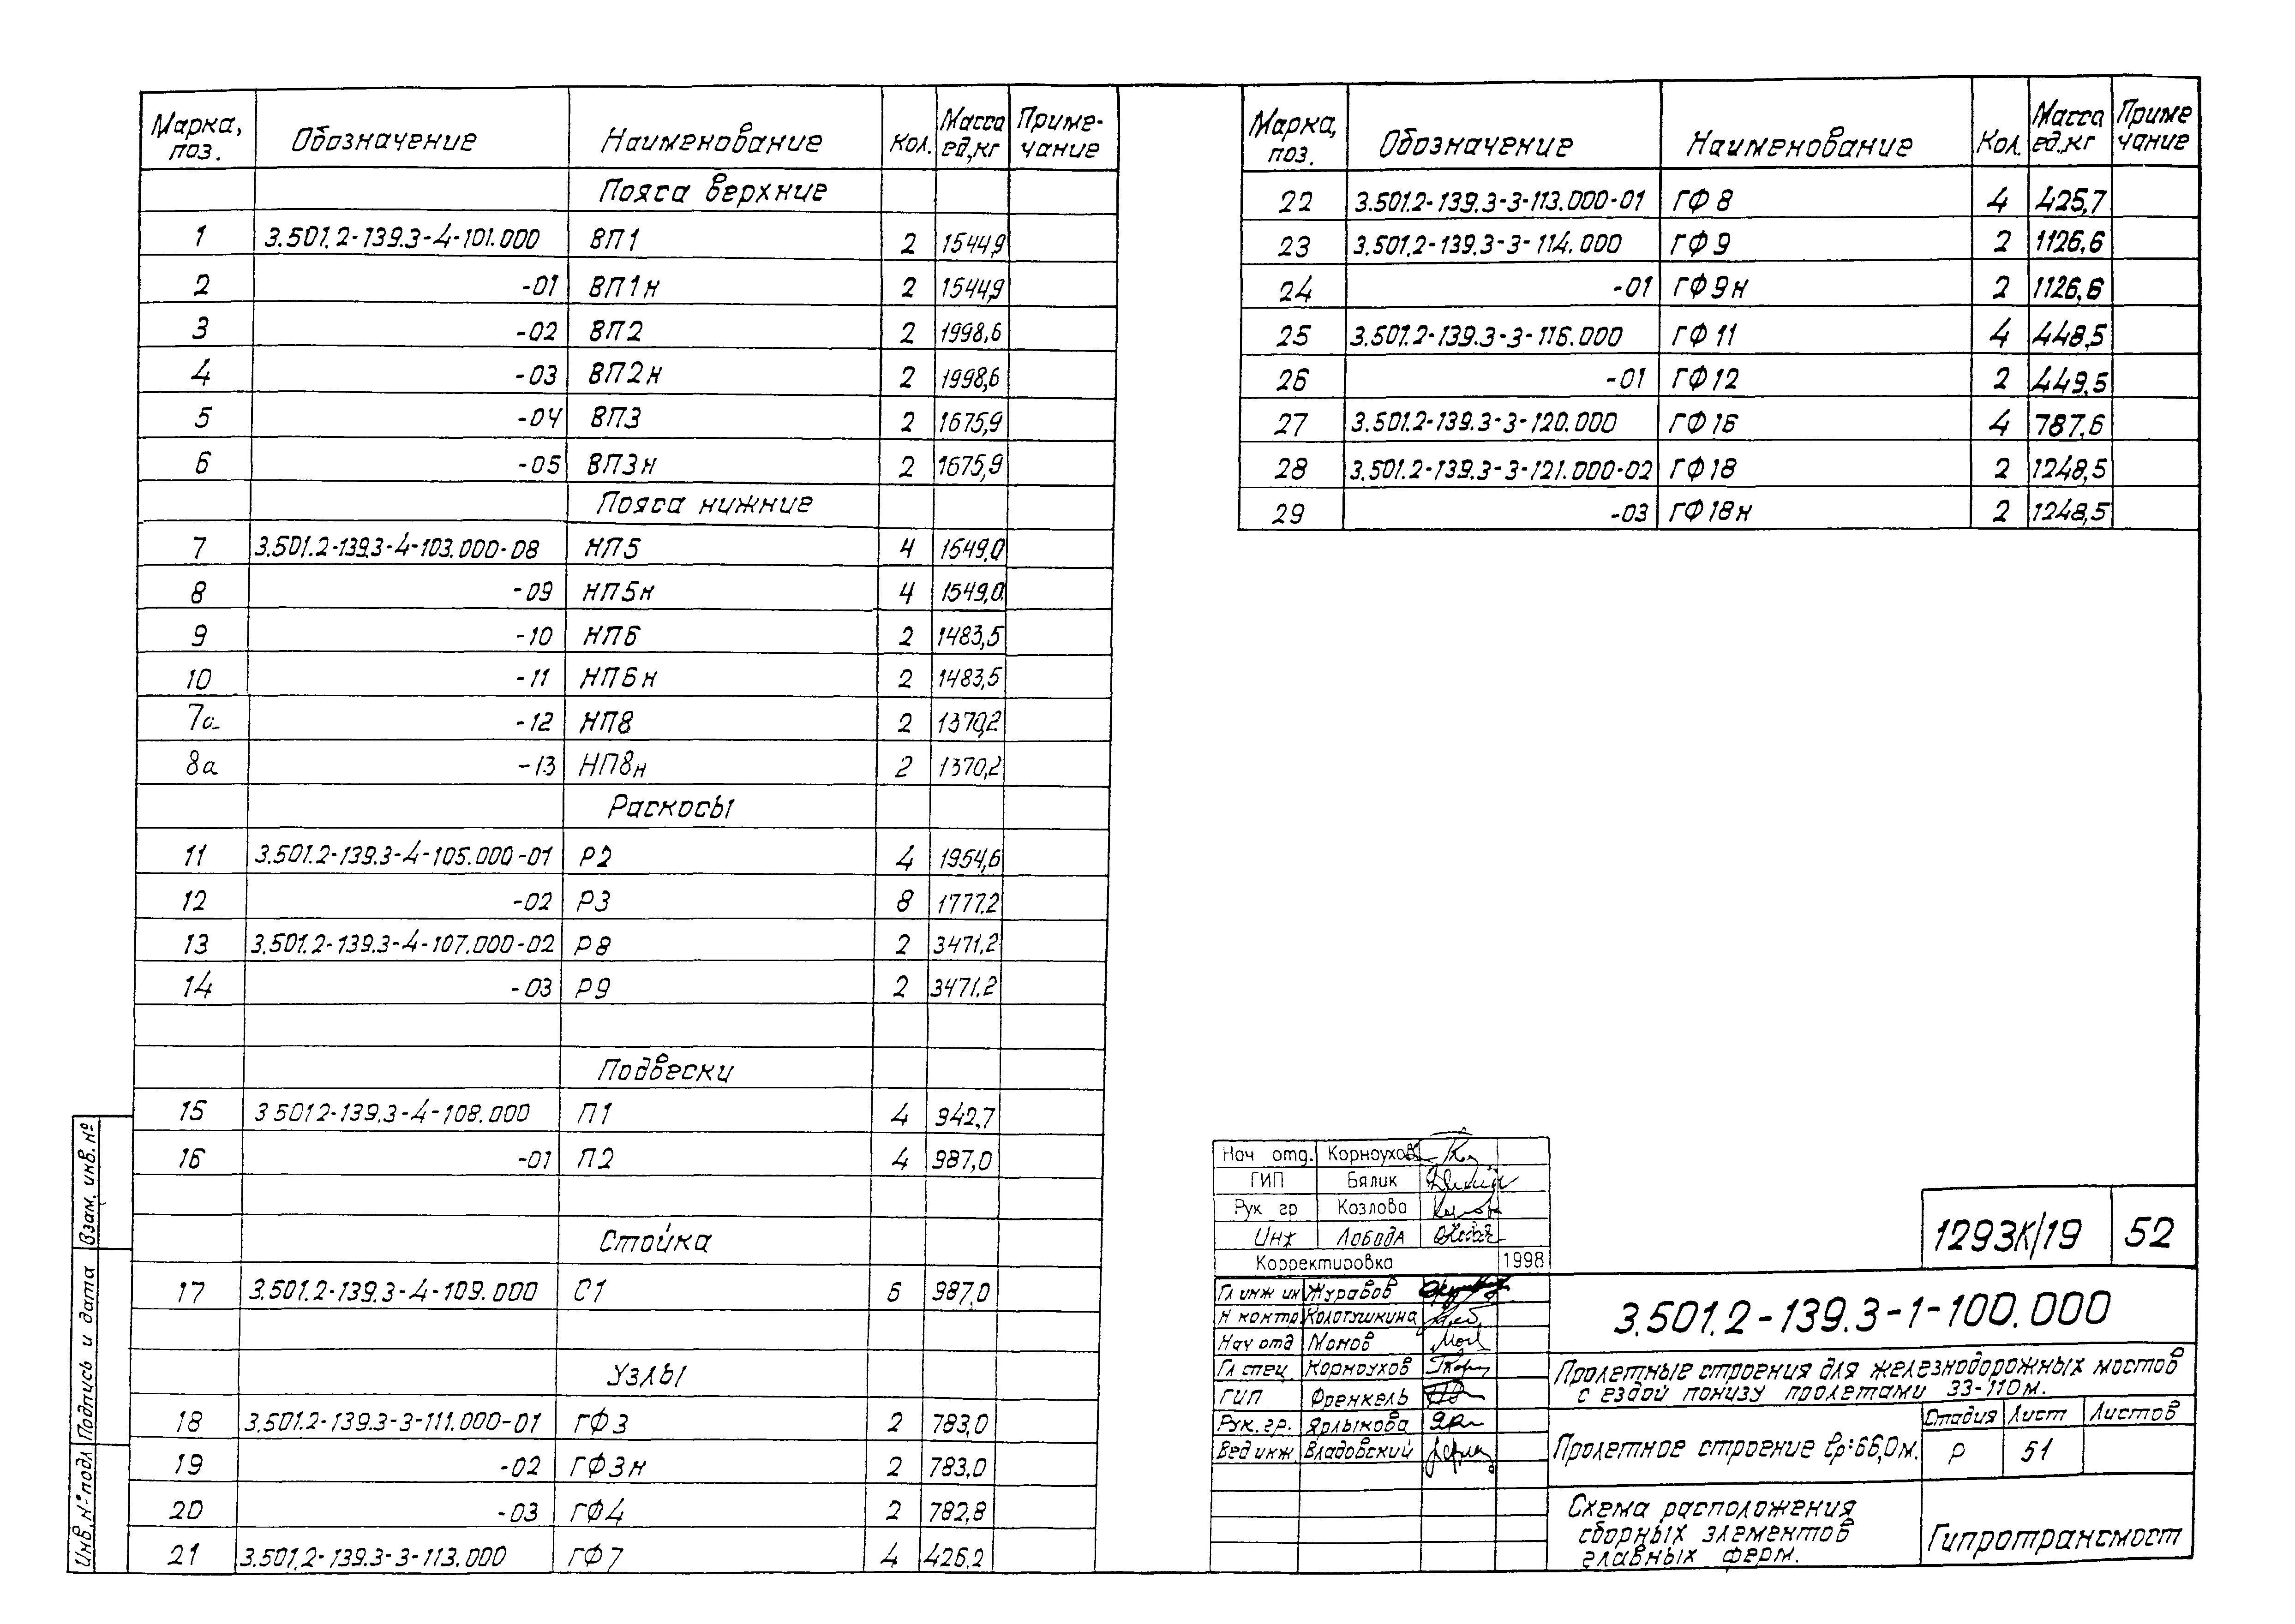 Марка, поз. Обозначение Наименование Кол. Масса ед,кг Приме-чание
Пояса верхние
1 3.501.2-139.3-4-101.000 ВП1 2 1544,9
2 -01 ВП1н 2 1544,9
3 -02 ВП2 2 1998,6
4 -03 ВП2н 2 1998,6
5 -04 ВП3 2 1675,9
6 -05 ВП3н 2 1675,9
Пояса нижние
7 3.501.2-139.3-4-103.000-08 НП5 4 1549,0
8 -09 НП5н 4 1549,0
9 -10 НП6 2 1483,5
10 -11 НП6н 2 1483,5
7а -12 НП8 2 1370,2
8а -13 НП8н 2 1370,2
Раскосы
11 3.501.2-139.3-4-105.000-01 Р2 4 1954,6
12 -02 Р3 8 1777,2
13 3.501.2-139.3-4-107.000-02 Р8 2 3471,2
14 -03 Р9 2 3471,2
Подвески
15 3 501 2-139.3-4-108.000 П1 4 942,7
16 -01 П2 4 987,0
Стойка
17 3.501.2-139.3-4-109.000 С1 6 987,0
Узлы
18 3.501.2-139.3-3-111.000-01 ГФ3 2 783,0
19 -02 ГФ3н 2 783,0
20 -03 ГФ4 2 782,8
21 3.501.2-139.3-3-113.000 ГФ7 4 426,2
Марка, поз. Обозначение Наименование Кол. Масса ед.кг Приме чание
22 3.501.2-139.3-3-113.000-01 ГФ8 4 425,7
23 3.501.2-139.3-3-114.000 ГФ9 2 1126,6
24 -01 ГФ9н 2 1126,6
25 3.501.2-139.3-3-116.000 ГФ11 4 448,5
26 -01 ГФ12 2 449,5
27 3.501.2-139.3-3-120.000 ГФ16 4 787,6
28 3.501.2-139.3-3-121.000-02 ГФ18 2 1248,5
29 -03 ГФ18н 2 1248,5
Взам. инв. №
Подпись и дата
Инв. № подл
Нач отд. Корноухов
ГИП Бялик
Рук гр Козлова
Инж Лобода
Корректировка 1998
Гл инж ин Журавов
Н контр Колотушкина
Нач отд Монов
Гл спец. Корноухов
ГИП Френкель
Рук. гр. Ярлыкова
Вед инж Владовский
1293К/19 52
3.501.2-139.3-1-100.000
Пролетные строения для железнодорожных мостов
с ездой понизу пролетами 33-110м.
Пролетное строение ℓр=66,0м.
Стадия Лист Листов
Р 51
Схема расположения
сборных элементов
главных ферм.
Гипротрансмост